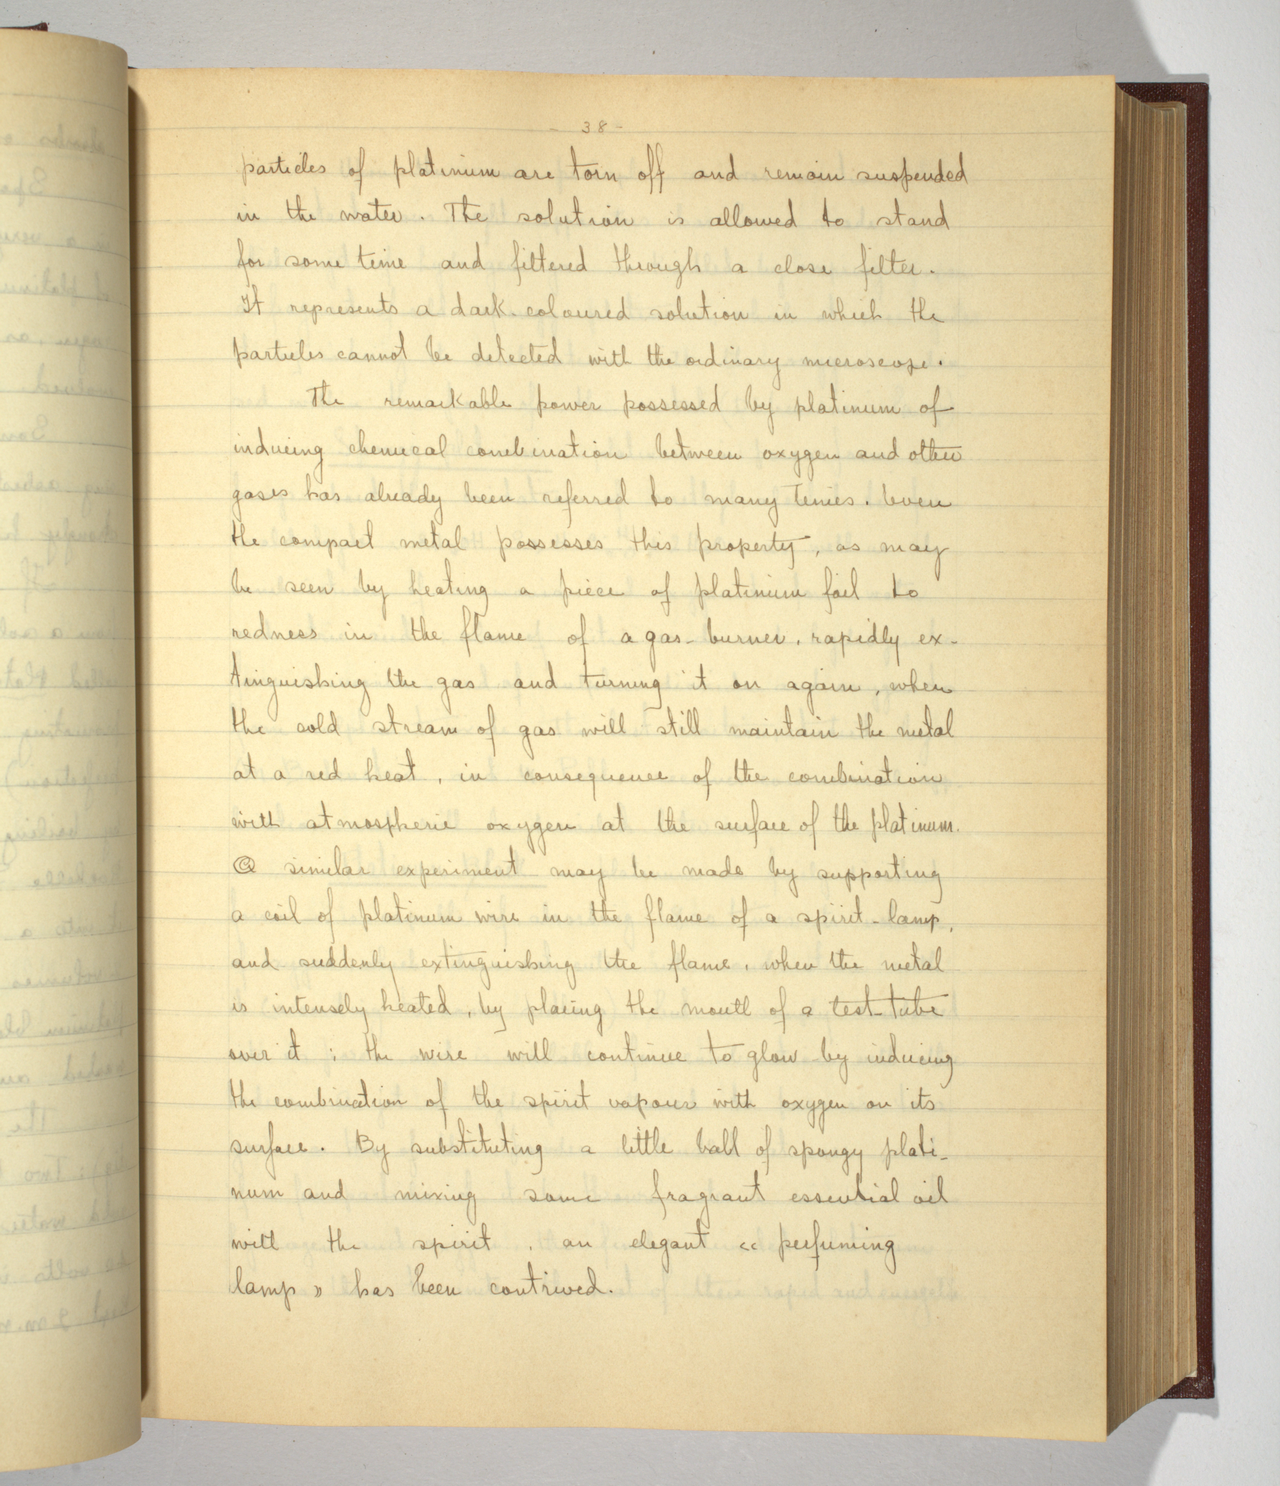 - 38 -
particles of platinum are torn off and remain suspended
in the water. The solution is allowed to stand
for some time and filtered through a close filter.
It represents a dark-coloured solution in which the
particles cannot be detected with the ordinary microscope.
The remarkable power possessed by platinum of
inducing chemical combination between oxygen and other
gases has already been referred to many times. Even
the compact metal possesses this property, as may
be seen by heating a piece of platinum foil to
redness in the flame of a gas-burner, rapidly ex-
tinguishing the gas and turning it on again, when
the cold stream of gas will still maintain the metal
at a red heat, in consequence of the combination
with atmospheric oxygen at the surface of the platinum.
A similar experiment may be made by supporting
a coil of platinum wire in the flame of a spirit-lamp,
and suddenly extinguishing the flame, when the metal
is intensely heated, by placing the mouth of a test-tube
over it; the wire will continue to glow by inducing
the combination of the spirit vapour with oxygen on its
surface. By substituting a little ball of spongy plati-
num and mixing some fragrant essential oil
with the spirit, an elegant « perfuming
lamp » has been contrived.